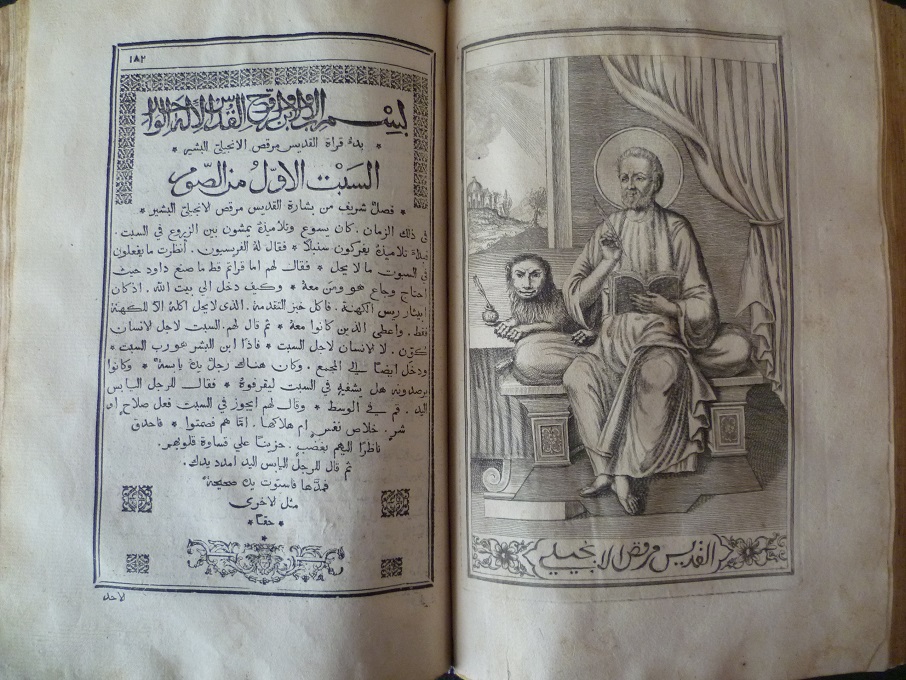 ١٨٢
بسم الاب والابن والروح القدس الاله الواحد
بدء قراة القديس مرقص الانجيلي البشير
السبت الاول من الصوم
* فصل شريف من بشارة القديس مرقص لانجيلي البشير *
في ذلك الزمان . كان يسوع وتلاميذه يمشون بين الزروع في السبت .
تلاميذه يفركون سنبلا * فقال له الفريسيون . انظرت ما يفعلون
في السبوت ما لا يحل * فقال لهم اما قراتم قط ما صنع داود حيث
احتاج وجاع هو ومن معه * وكيف دخل الى بيت الله . اذ كان
ابيثار ريس الكهنة . فاكل خبز التقدمة . الذى لا يحل اكله الا للكهنة
فقط . واعطى الذين كانوا معه * ثم قال لهم . السبت لاجل لانسان
تكون . لا لانسان لاجل السبت * فاذا ابن البشر هو رب السبت *
ودخل ايضا في المجمع . وكان هناك رجل يده يابسة * وكانوا
يرصدونه هل يشفيه في السبت ليقرفوه * فقال للرجل اليابس
اليد . قم في الوسط * وقال لهم ايجوز في السبت فعل صلاح ام
شر . خلاص نفس ام هلاكها . امّا هم فصمتوا * فاحدق
ناظرا اليهم بغضب . حزينا على قساوة قلوبهم .
ثم قال للرجل اليابس اليد امدد يدك .
فمدّها فاستوت يده صحيحة
مثل لاخرى
* حقا *
لاحد
القديس مرقص الانجيلي